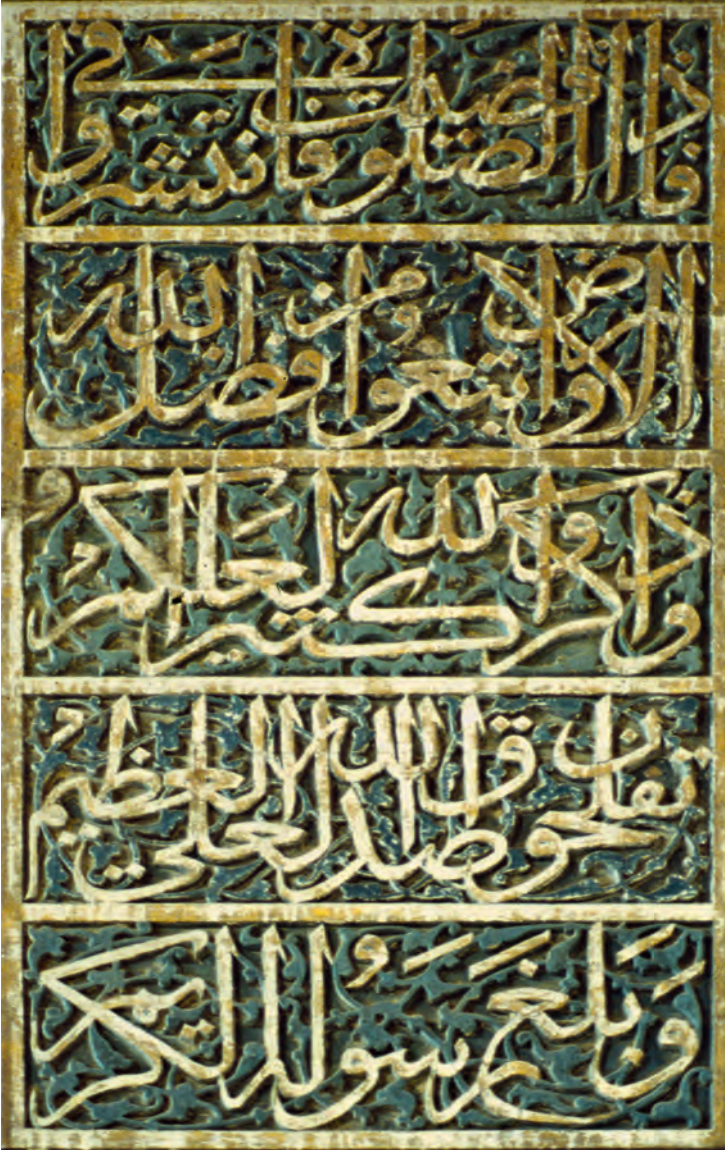 فاذا قضيت الصلوة فانتشروا في
الارض وابتغوا من فضل الله
واذكروا الله كثيرا لعلكم
تفلحون صدق الله العلي العظيم
وبلغ رسوله الكريم